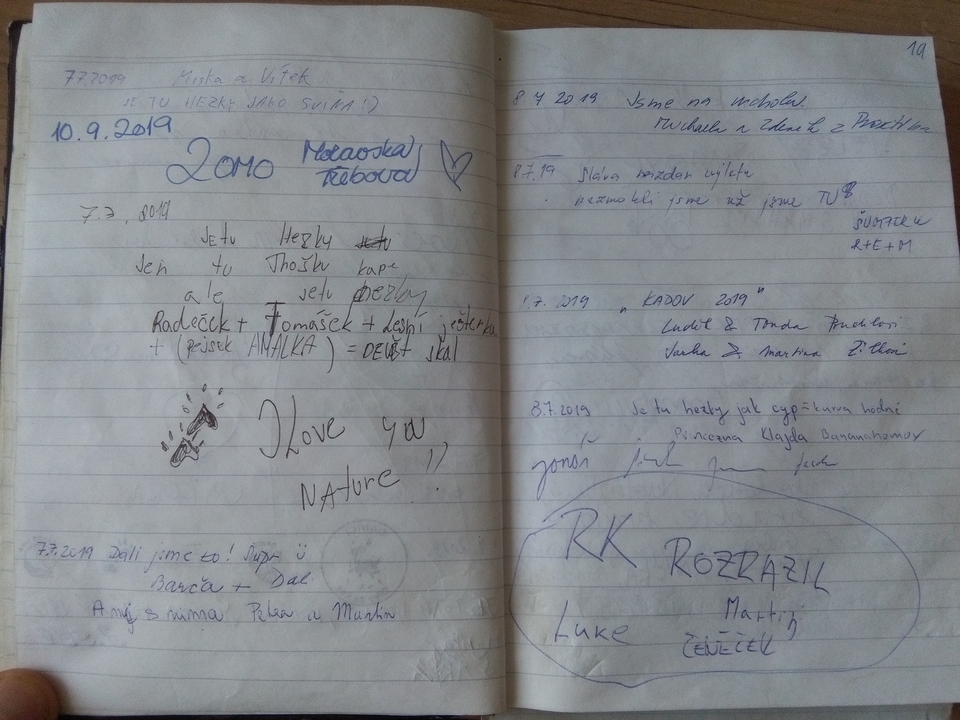 7.7.2019 Miška a Vítek
JE TU HEZKY JAKO SVIŇA :)
10.9.2019
Zomo Moravská
Třebová
7.7.2019
JeTu Hezky
Jen tu Trošku kape
ale jetu hezky
Radeček + Tomášek + Lesní ještěrka
+ (pejsek AMÁLKA) = DEVĚT skal
I Love you
NAture !!
7.7.2019 Dali jsme to! Supr ü
Barča + Dal
A my s nima Petra a Martin
19
8 7 2019 Jsme na vrcholu.
Michaela a Zdeněk z
8.7.19 Sláva nazdar výletu
nezmokli jsme už jsme TU
R+E+M
.7.2019 "KADOV 2019"
Luděk & Tonda
Janka & Martina
8.7.2019 Je tu hezky jak cyp = kurva hodně
Princezna Klajda Bananahamov
Jonáš
RK ROZRAZIL
Luke Martin
ČENĚČEK